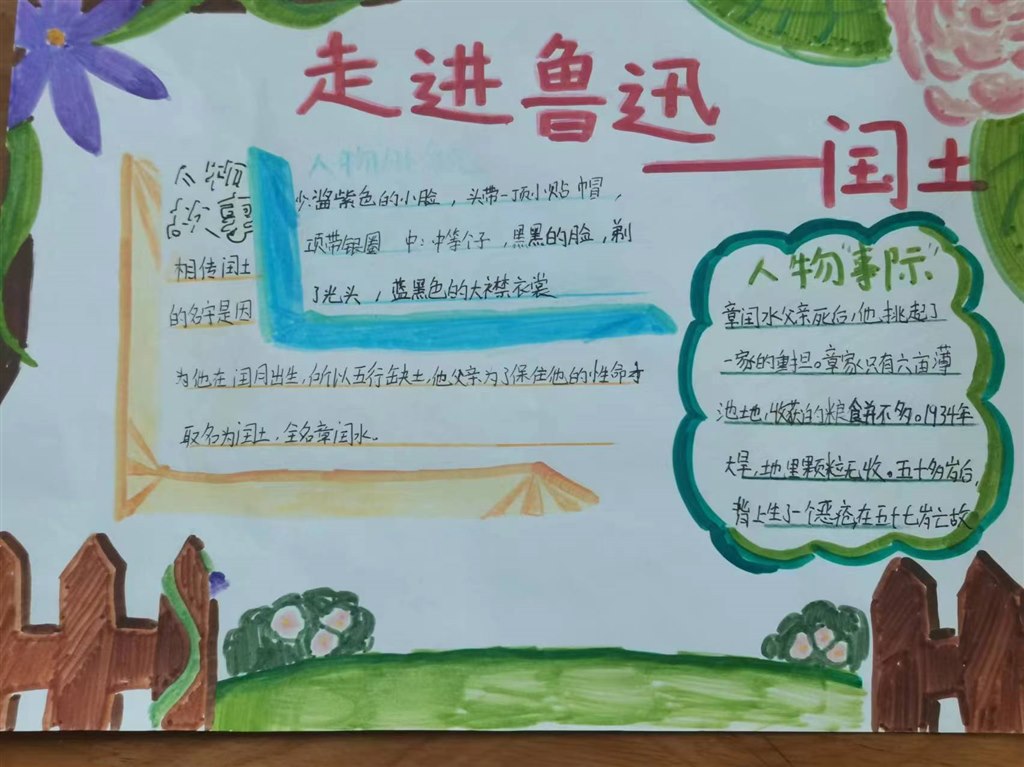 走进鲁迅
——闰土
人物
故事
相传闰土
的名字是因
为他在闰月出生,所以五行缺土,他父亲为了保住他的性命才
取名为闰土,全名章闰水。
少:酱紫色的小脸,头带一顶小贴帽,
项带银圈 中:中等个子,黑黑的脸,剃
了光头,蓝黑色的大襟衣裳
人物"事际"
章闰水父亲死后,他挑起了
一家的重担。章家只有六亩薄
池土地,收获的粮食并不多。1934年
大旱,地里颗粒无收。五十多岁后,
背上生了一个恶疮,在五十七岁亡故